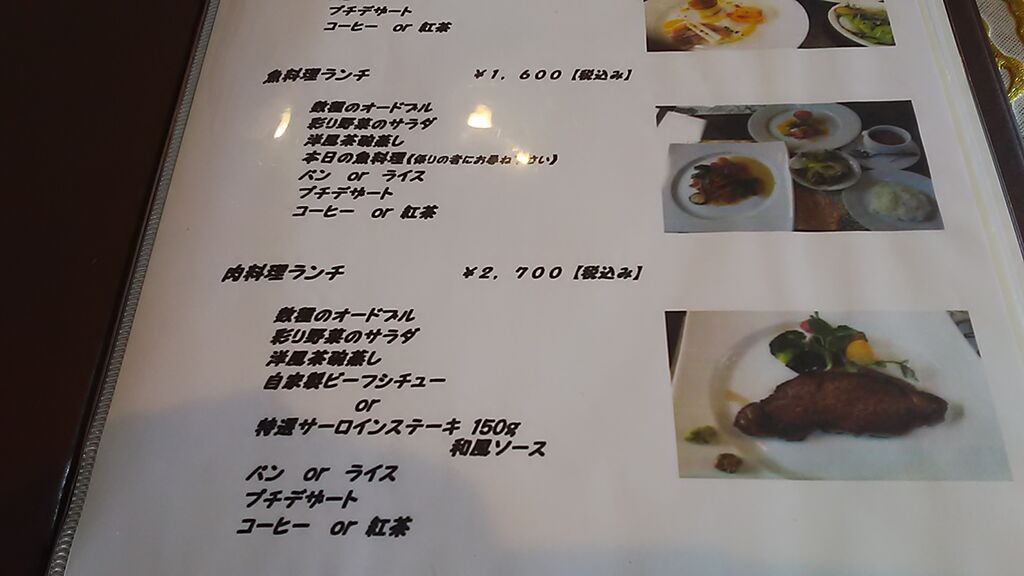 プチデザート
コーヒー or 紅茶
魚料理ランチ ￥1，600【税込み】
数種のオードブル
彩り野菜のサラダ
洋風茶碗蒸し
本日の魚料理(係りの者にお尋ね さい)
パン or ライス
プチデザート
コーヒー or 紅茶
肉料理ランチ ￥2，700【税込み】
数種のオードブル
彩り野菜のサラダ
洋風茶碗蒸し
自家製ビーフシチュー
or
特選サーロインステーキ 150g
和風ソース
パン or ライス
プチデザート
コーヒー or 紅茶